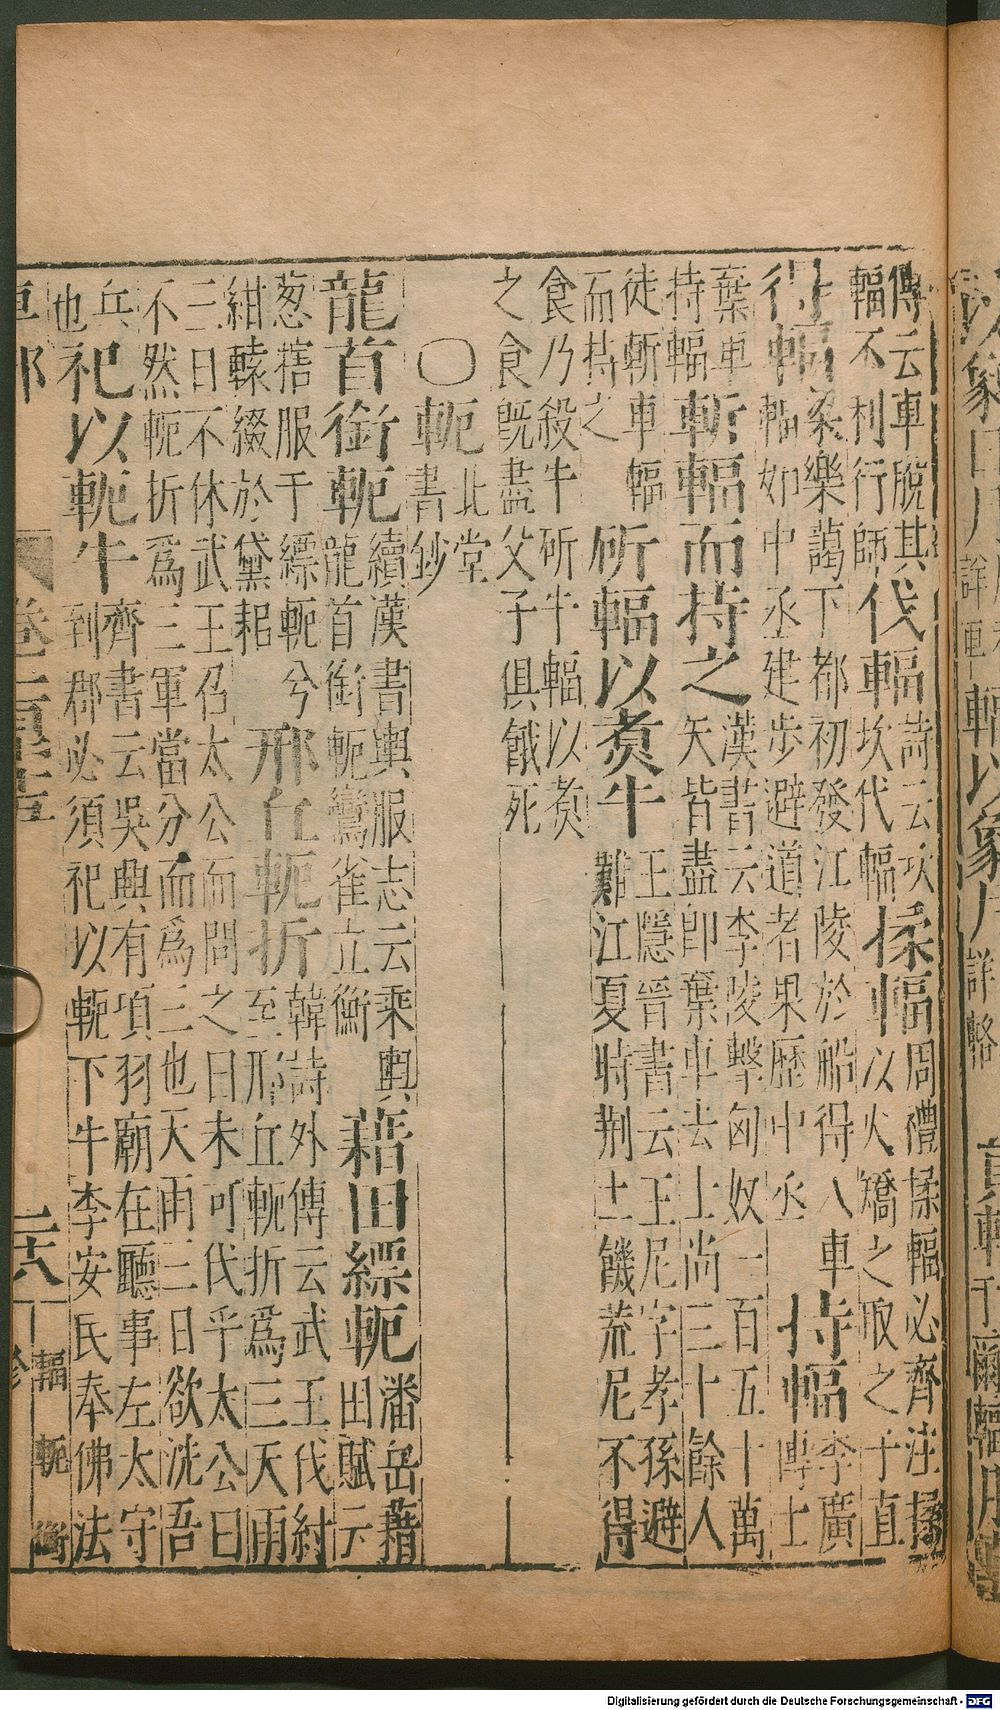 傳云車脫其
輻不利行師
伐輻
詩云坎
坎代輻
揉輻
周禮揉輻必齊注揉
以火矯之取之于直
得輻
梁樂藹下都初發江陵於船得八車
輻如中丞建步避道者果歷中丞
持輻
李廣
傳士
棄車
持輻
斬輻而持之
漢書云李陵擊匈奴一百五十萬
矢皆盡即棄車去上尚三十餘人
徒斬車輻
而持之
斫輻以煑牛
王隱晉書云王尼字孝孫避
難江夏時荆土饑荒尼不得
食乃殺牛斫牛輻以煑
之食旣盡父子俱餓死
○軛
北堂
書鈔
龍首銜軛
續漢書輿服志云乘輿
龍首銜軛鸞雀立衡
藉田縹軛
潘岳藉
田賦云
葱犗服于縹軛兮
紺轅綴於黛耜
邢丘軛折
韓詩外傳云武王伐紂
至邢丘軛折爲三天雨
三日不休武王召太公而問之曰未可伐乎太公曰
不然軛折爲三軍當分而爲三也天雨三日欲洗吾
兵
也
祀以軛牛
齊書云吳興有項羽廟在聽事左太守
到郡必須祀以軛下牛李安民奉佛法
輻 軛 衡
Digitalisierung gefördert durch die Deutsche Forschungsgemeinschaft - DFG